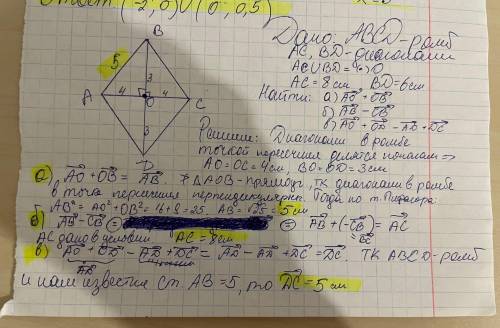 Ответ (-2;0)∪(0;0,5)
Дано: ABCD-ромб
AC, BD-диагонали
AC∪BD=(•)O
AC=8см BD=6см
Найти: а) AO+OB
б) AB-CB
в) AO+OD-AD+DC
B
5
3
A
4
O
4
C
3
D
Решение: Диагонали в ромбе
точкой пересечения делятся пополам =>
AO=OC=4см, BO=OD=3см
а) AO+OB=AB △AOB-прямоуг, тк диагонали в ромбе
в точке пересечения перпендикулярны. Тогда по т. Пифагора:
AB²=AO²+OB²=16+9=25. AB=√25=5см
б) AB-CB = = AB+(-CB)=AC
=BC
AC дано в условии AC=8см
в) AO+OD-AD+DC=AD-AD+DC=DC. тк ABCD-ромб
и нам известна ст. AB=5, то DC=5см